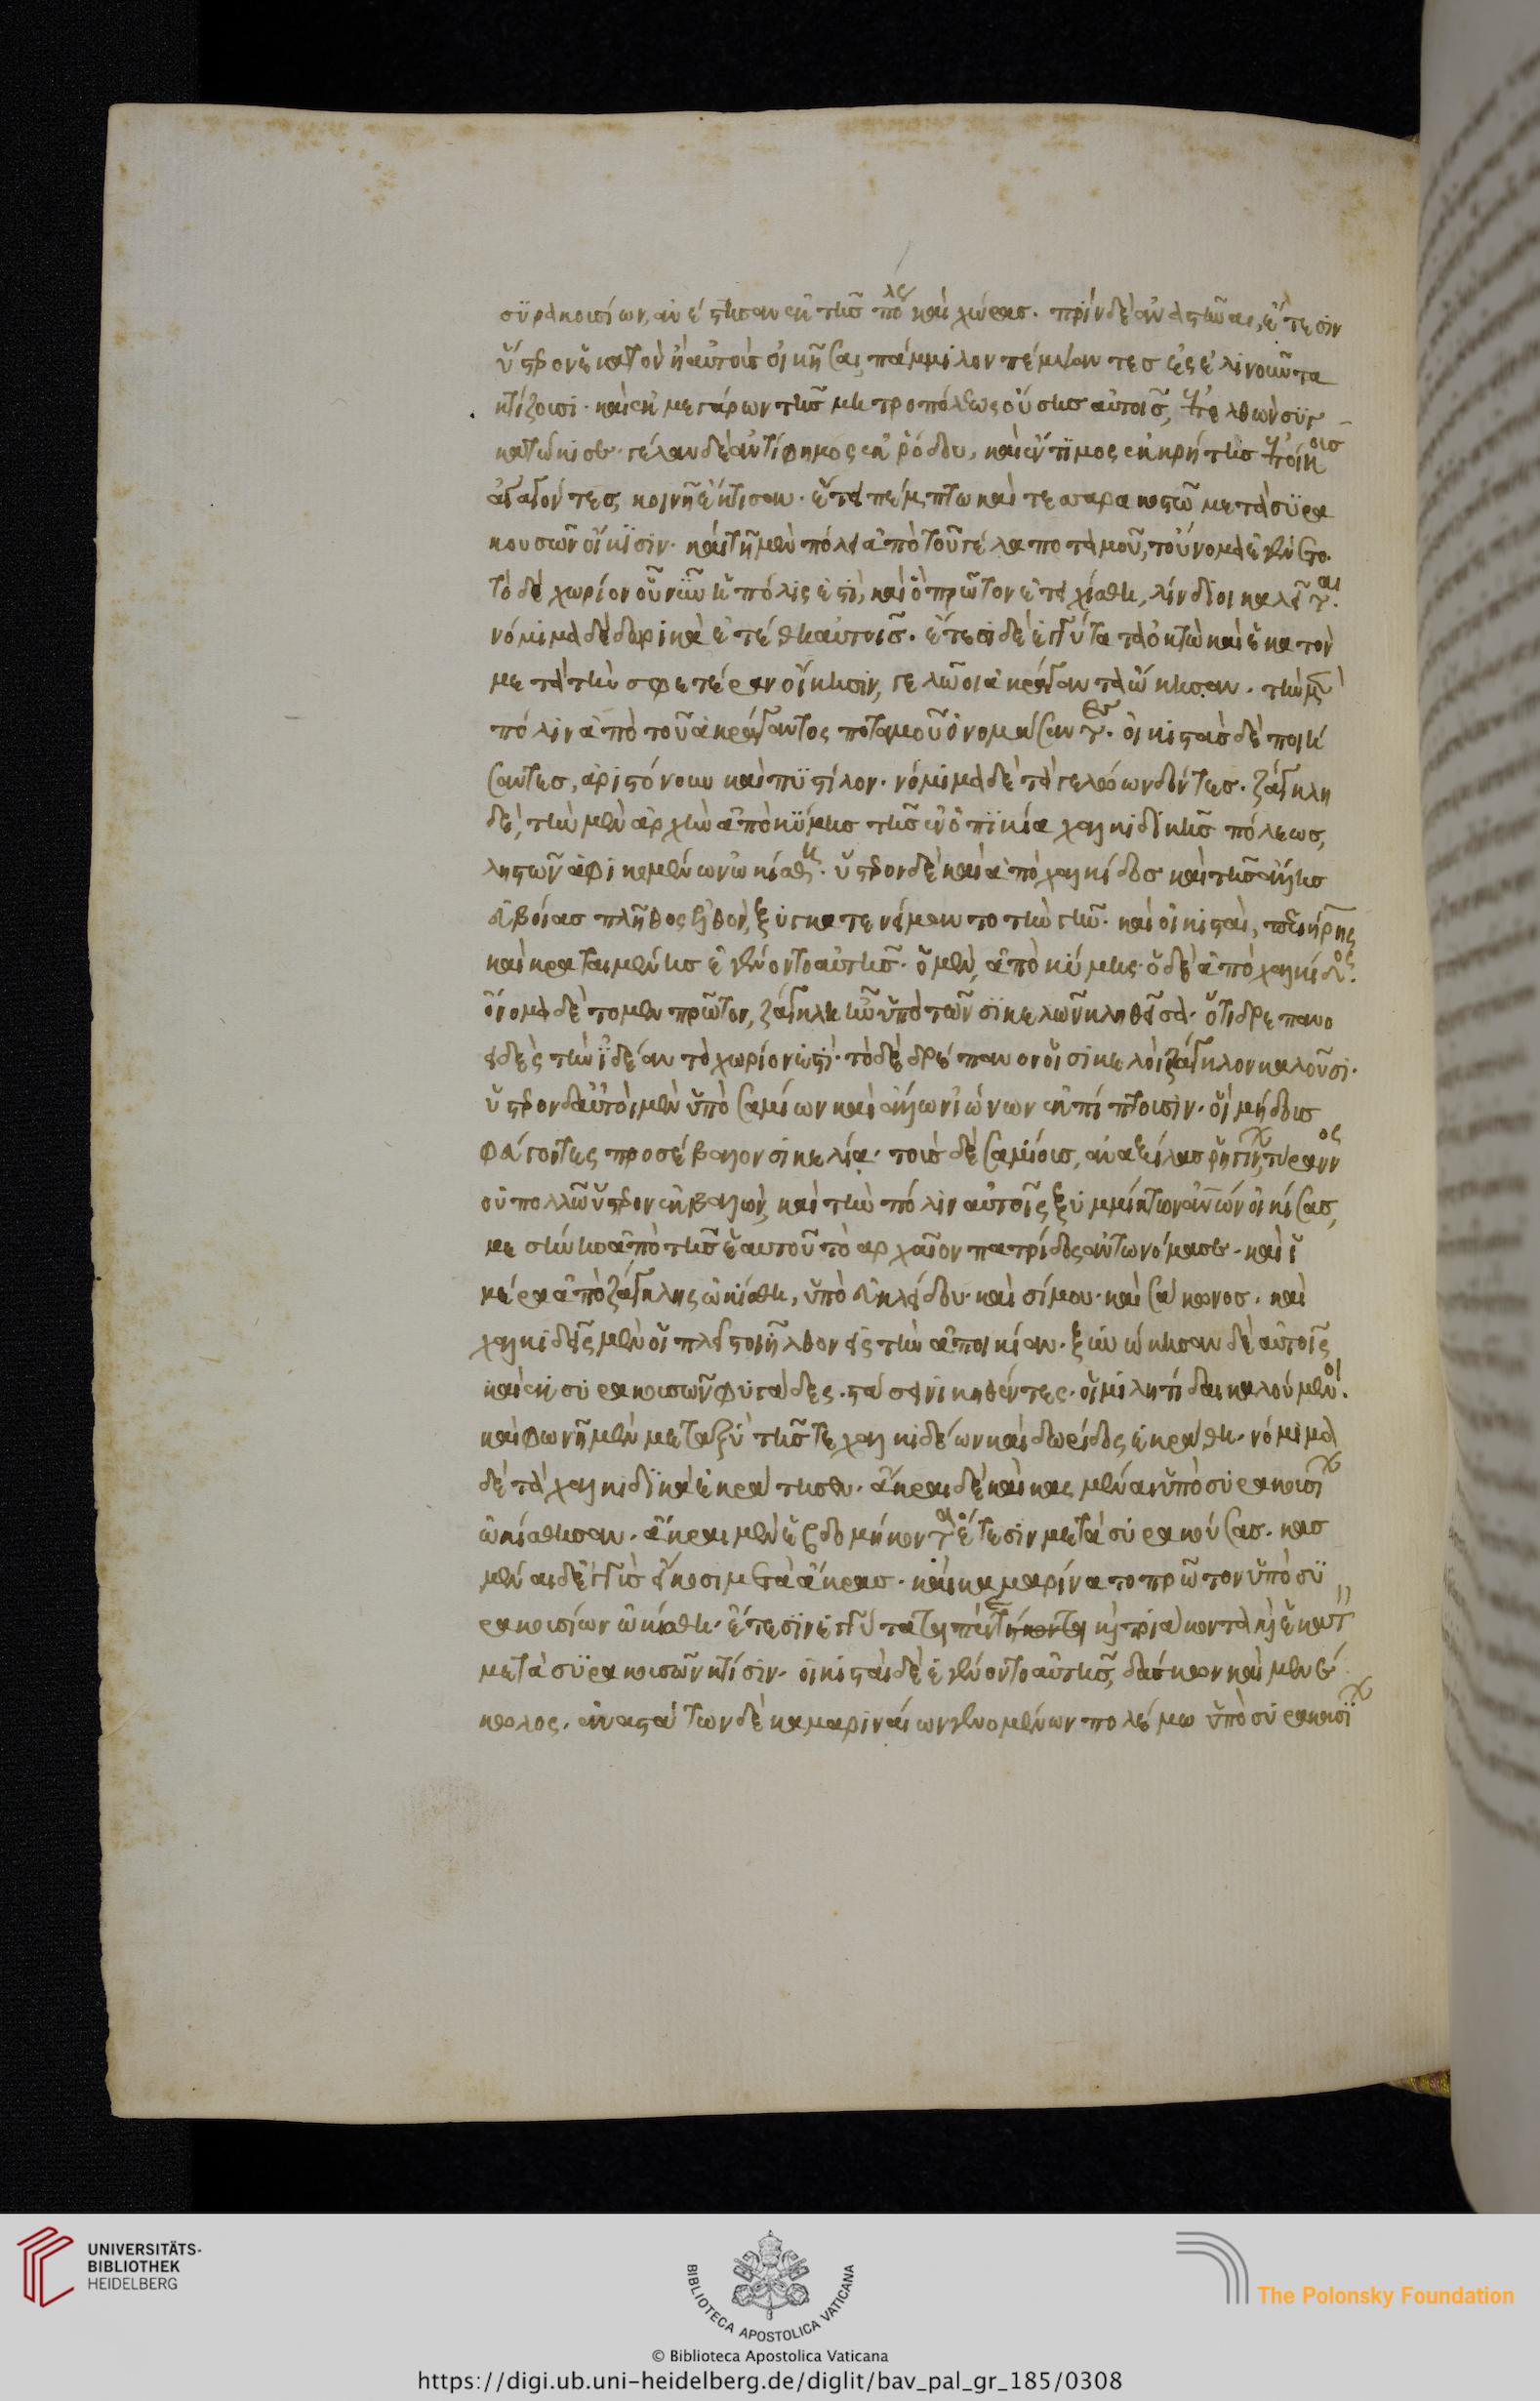 συρακουσίων, ἀνέστησαν ἐκ τῆσ πόλεως καὶ χώρασ. πρὶν δὲ ἀναστῆναι, ἔτεσιν
ὕστερον ἑκατὸν ἢ αὐτοὺσ οἰκῆσαι, πάμμιλον πέμψαντεσ ἐς σελινοῦντα
κτίζουσι. καὶ ἐκ μεγάρων τῆσ μητροπόλεως οὔσησ αὐτοῖσ, ἐπελθὼν ξυγ
κατῴκισε. γέλαν δὲ ἀντίφημος ἐκ ῥόδου, καὶ ἔντιμος ἐκ κρήτησ ἐποίκουσ
ἀγαγόντεσ, κοινῇ ἔκτισαν. ἔτει πέμπτω καὶ τεσσαρακοστῶ μετὰ συρα
κουσῶν οἴκισιν. καὶ τῇ μὲν πόλει ἀπὸ τοῦ γέλα ποταμοῦ, τοὔνομα ἐγένετο.
τὸ δὲ χωρίον οὗ νῦν ἡ πόλις ἐστὶ, καὶ ὃ πρῶτον ἐτειχίσθη, λίνδιοι καλεῖται.
νόμιμα δὲ δωρικὰ ἐτέθη αὐτοῖσ. ἔτεσι δὲ ἐγγύτατα ὀκτὼ καὶ ἑκατὸν
μετὰ τὴν σφετέραν οἴκησιν, γελῶοι ἀκράγαντα ᾤκησαν. τὴν μὲν
πόλιν ἀπὸ τοῦ ἀκράγαντος ποταμοῦ ὀνομάσαντεσ. οἰκιστὰσ δὲ ποιή
σαντεσ, ἀριστόνουν καὶ πυστίλον. νόμιμα δὲ τὰ γελώων δόντεσ. ζάγκλη
δὲ, τὴν μὲν ἀρχὴν ἀπὸ κύμησ τῆσ ἐν ὀπικία χαλκιδικῆσ πόλεωσ,
ληστῶν ἀφικομένων ὠκίσθη. ὕστερον δὲ καὶ ἀπὸ χαλκίδοσ καὶ τῆσ ἄλλησ
εὐβοίασ πλῆθος ἐλθὸν, ξυγκατενείμαντο τὴν γῆν. καὶ οἰκισταὶ, περιήρης
καὶ κραταιμένησ ἐγένοντο αὐτῆσ. ὁ μὲν, ἀπὸ κύμης. ὁ δὲ ἀπὸ χαλκίδος.
ὄνομα δὲ τὸ μὲν πρῶτον, ζάγκλη ἦν ὑπὸ τῶν σικελῶν κληθεῖσα. ὅτι δρεπανο
ειδὲς τὴν ἰδέαν τὸ χωρίον ἐστί. τὸ δὲ δρέπανον οἱ σικελοὶ ζάγκλον καλοῦσι.
ὕστερον δ' αὐτοὶ μὲν ὑπὸ σαμίων καὶ ἄλλων ἰώνων ἐκπίπτουσιν. οἳ μήδουσ
φεύγοντες προσέβαλον σικελία. τοὺσ δὲ σαμίουσ, ἀναξίλασ ῥηγίνων τύραννος
οὐ πολλῶ ὕστερον ἐκβαλὼν, καὶ τὴν πόλιν αὐτοῖς ξυμμίκτων ἀνθρώπων οἰκίσασ,
μεσσήνησ ἀπὸ τῆσ ἑαυτοῦ τὸ ἀρχαῖον πατρίδος ἀντωνόμασε. καὶ ἱ
μέρα ἀπὸ ζάγκλης ὠκίσθη, ὑπὸ εὐκλείδου. καὶ σίμου. καὶ σάκωνοσ. καὶ
χαλκιδεῖς μὲν οἱ πλεῖστοι ἦλθον εἰς τὴν ἀποικίαν. ξυνῴκησαν δὲ αὐτοῖς
καὶ ἐκ συρακουσῶν φυγάδες. στάσει νικηθέντες. οἱ μιλητίδαι καλούμενοι.
καὶ φωνῇ μὲν μεταξὺ τῆσ τε χαλκιδέων καὶ δωρίδος ἐκράθη. νόμιμα
δὲ τὰ χαλκιδικὰ ἐκράτησεν. ἄκραι δὲ καὶ κασμέναι ὑπὸ συρακουσίων
ὠκίσθησαν. ἄκραι μὲν ἑβδομήκοντα ἔτεσιν μετὰ συρακούσασ. κασ
μέναι δὲ ἐγγὺσ εἴκοσι μετὰ ἄκρασ. καὶ καμαρίνα τὸ πρῶτον ὑπὸ συ
ρακουσίων ὠκίσθη. ἔτεσιν ἐγγύτατα πέντε καὶ τριάκοντα καὶ ἑκατὸν
μετὰ συρακουσῶν κτίσιν. οἰκισταὶ δὲ ἐγένοντο αὐτῆσ, δάσκων καὶ μενέ
κωλος. ἀναστάτων δὲ καμαριναίων γενομένων πολέμω ὑπὸ συρακουσίων
UNIVERSITÄTS-
BIBLIOTHEK
HEIDELBERG
BIBLIOTECA APOSTOLICA VATICANA
The Polonsky Foundation
© Biblioteca Apostolica Vaticana
https://digi.ub.uni-heidelberg.de/diglit/bav_pal_gr_185/0308